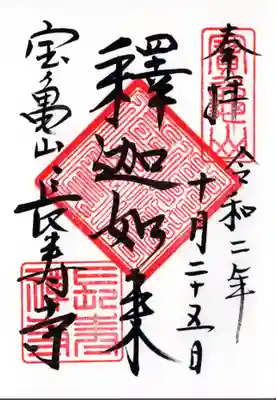 奉拝
令和二年
十月二十五日
釋迦如来
宝亀山
長寿寺